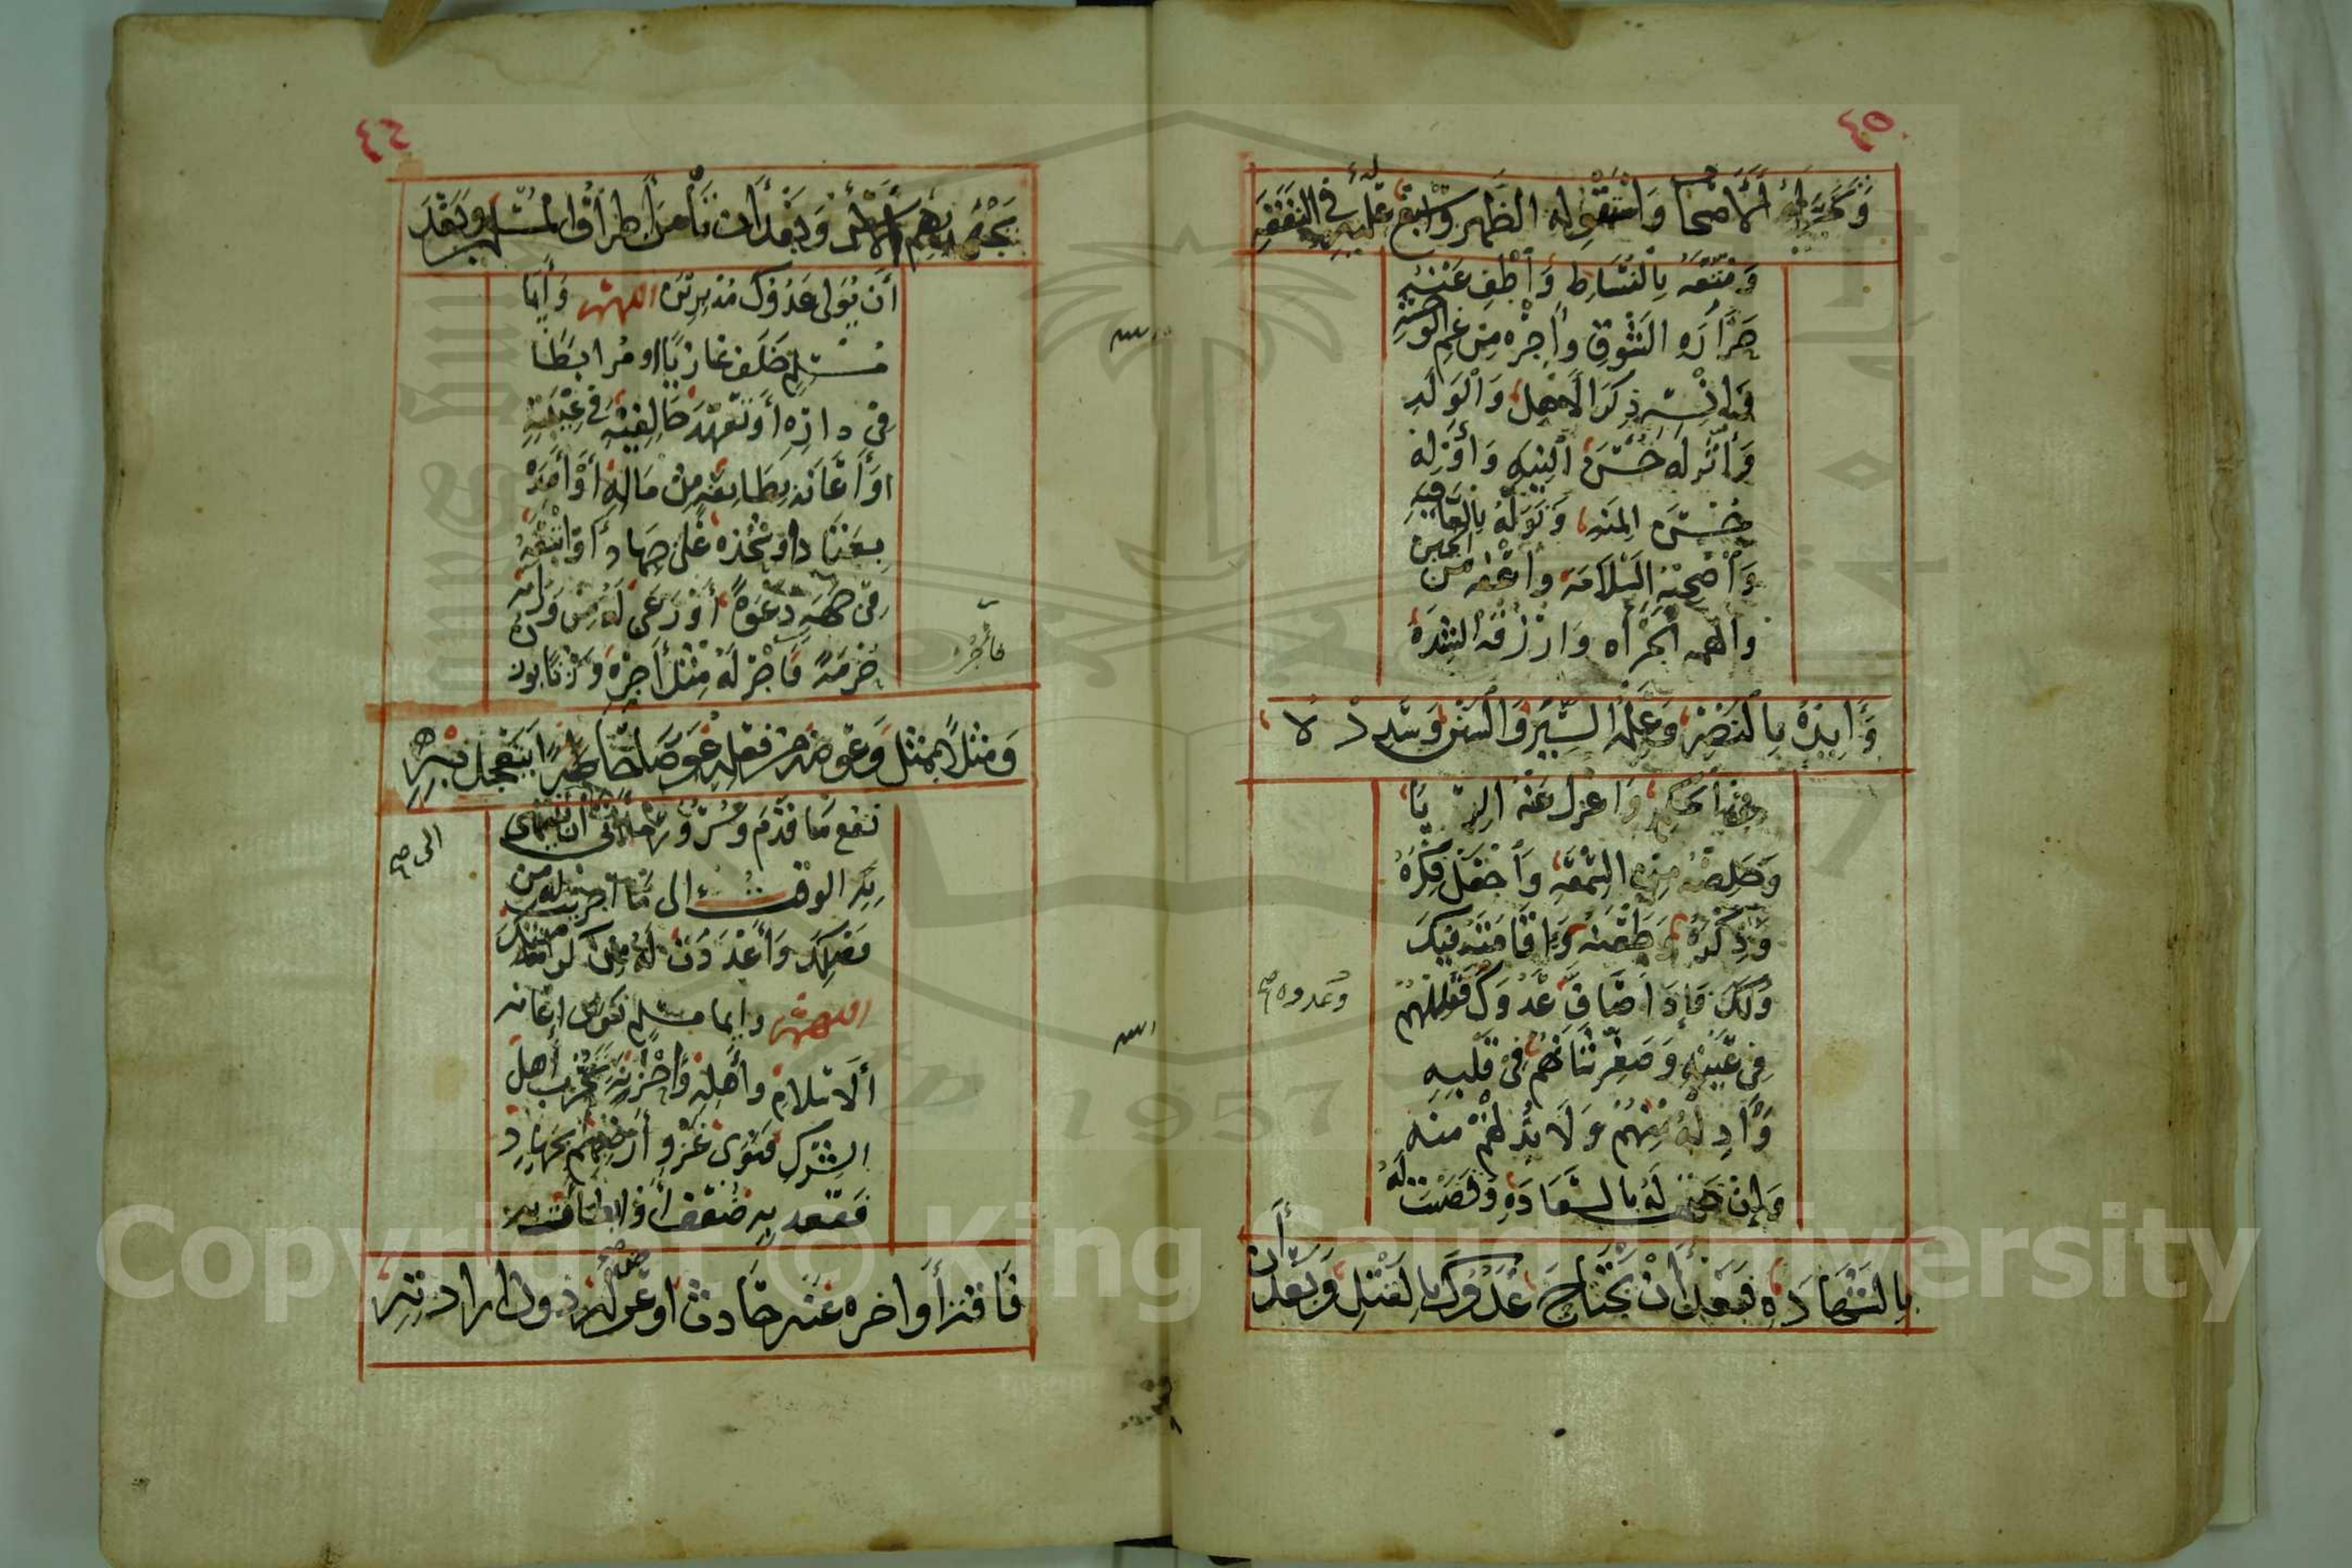 ٤٥
وتخير له الأصحاب واستقو له الظهر واسبغ عليه في النفقة
ومتعه بالنشاط وأطف عنه
حرارة الشوق وأجره من غم الوحشة
وانسه ذكر الأهل والولد
وأثر له حسن النية وأوزله
حسن المنه وتوله بالعافية
وأصحبه السلامة وأعفه من الجبن
وألهمه الجرأه وارزقه الشدة
وأيده بالنصر وعلمه السير والسنن وسدده
في الحكم واعزل عنه الريا
وخلصه من السمعة وأجعل فكره
وذكره وظعنه وإقامته فيك
ولك فإذا صاف عدوك فقللهم
في عينه وصغر شأنهم في قلبه
وأدل له منهم ولا تدلهم منه
وإن ختمت له بالسعادة وقضيت له
بالشهادة فبعد أن يجتاح عدوك بالقتل وبعد أن
وعدوه
٤٦
يجهد بهم الأسر وبعد أن تأمن أطراف المسلمين وبعد
أن يولي عدوك مدبرين اللهم وأيما
مسلم خلف غازيا او مرابطا
في داره أو تعهد خالفيه في غيبته
او أعانه بطايفة من ماله أو أمده
بعتاد او شحذه على جهاد أو اتبعه
في وجهه دعوة أو رعى له من ورائه
حرمة فأجر له مثل أجره وزنا بوزن
ومثلا بمثل وعوضه من فعله عوضا حاضرا يتعجل به
نفع ما قدم وسرور ما أتى أن ينتهي
به الوقت الى ما اجريت له من
فضلك وأعددت له من كرامتك
اللهم وايما مسلم
الاسلام وأهله وأحزنه تحزب أهل
الشرك فنوى غزوا أرضهم بجهاد
فقعد به ضعف أو ابطات به
فاقة أو اخره عنه حادث او عرض له دون ارادته
فأجر
الى